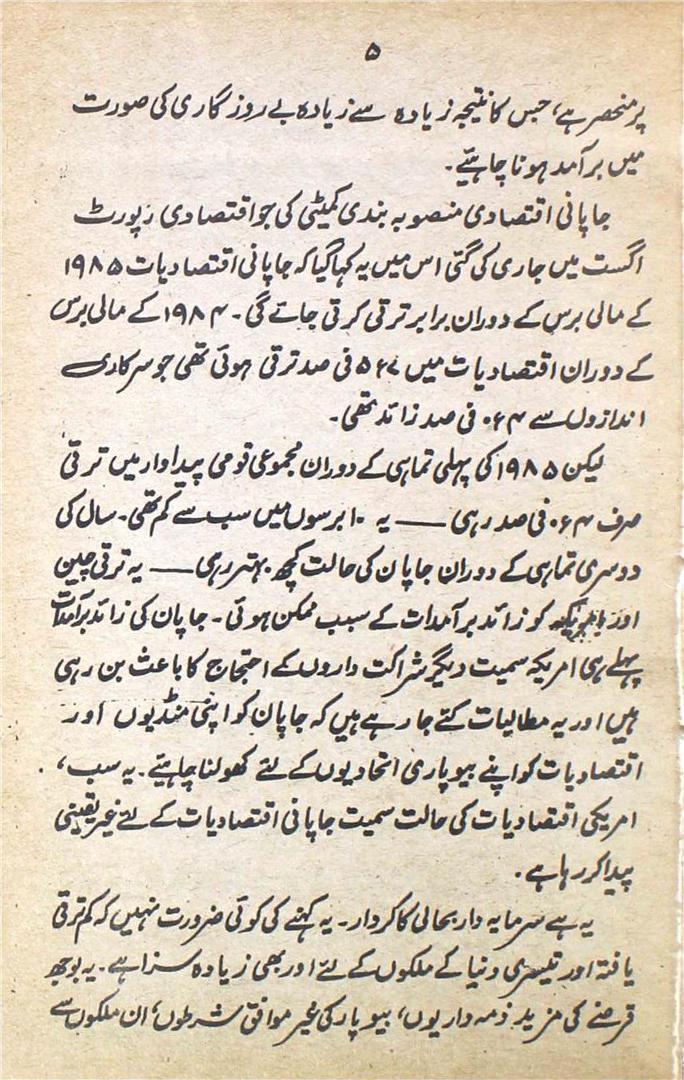 ۵
پر منحصر ہے، جس کا نتیجہ زیادہ سے زیادہ بے روزگاری کی صورت
میں برآمد ہونا چاہیئے۔
جاپانی اقتصادی منصوبہ بندی کمیٹی کی جو اقتصادی رپورٹ
اگست میں جاری کی گئی اس میں یہ کہا گیا کہ جاپانی اقتصادیات ۱۹۸۵
کے مالی برس کے دوران برابر ترقی کرتی جائے گی۔ ۱۹۸۴ کے مالی برس
کے دوران اقتصادیات میں ۵٫۷ فی صد ترقی ہوئی تھی جو سرکاری
اندازوں سے ۰٫۴ فی صد زائد تھی۔
لیکن ۱۹۸۵ کی پہلی تماہی کے دوران مجموعی قومی پیداوار میں ترقی
صرف ۰٫۴ فی صد رہی — یہ ۱۰ برسوں میں سب سے کم تھی۔ سال کی
دوسری تماہی کے دوران جاپان کی حالت کچھ بہتر رہی — یہ ترقی چین
اور امریکہ کو زائد برآمدات کے سبب ممکن ہوئی۔ جاپان کی زائد برآمدات
پہلے ہی امریکہ سمیت دیگر شراکت داروں کے احتجاج کا باعث بن رہی
ہیں اور یہ مطالبات کئے جا رہے ہیں کہ جاپان کو اپنی منڈیوں اور
اقتصادیات کو اپنے بیوپاری اتحادیوں کے لئے کھولنا چاہیئے۔ یہ سب،
امریکی اقتصادیات کی حالت سمیت جاپانی اقتصادیات کے لئے غیر یقینی
پیدا کر رہا ہے۔
یہ ہے سرمایہ دار بحالی کا کردار۔ یہ کہنے کی کوئی ضرورت نہیں کہ کم ترقی
یافتہ اور تیسری دنیا کے ملکوں کے لئے اور بھی زیادہ سزا ہے۔ یہ بوجھ
قرضے کی مزید ذمہ داریوں، بیوپار کی غیر موافق شرطوں، ان ملکوں سے